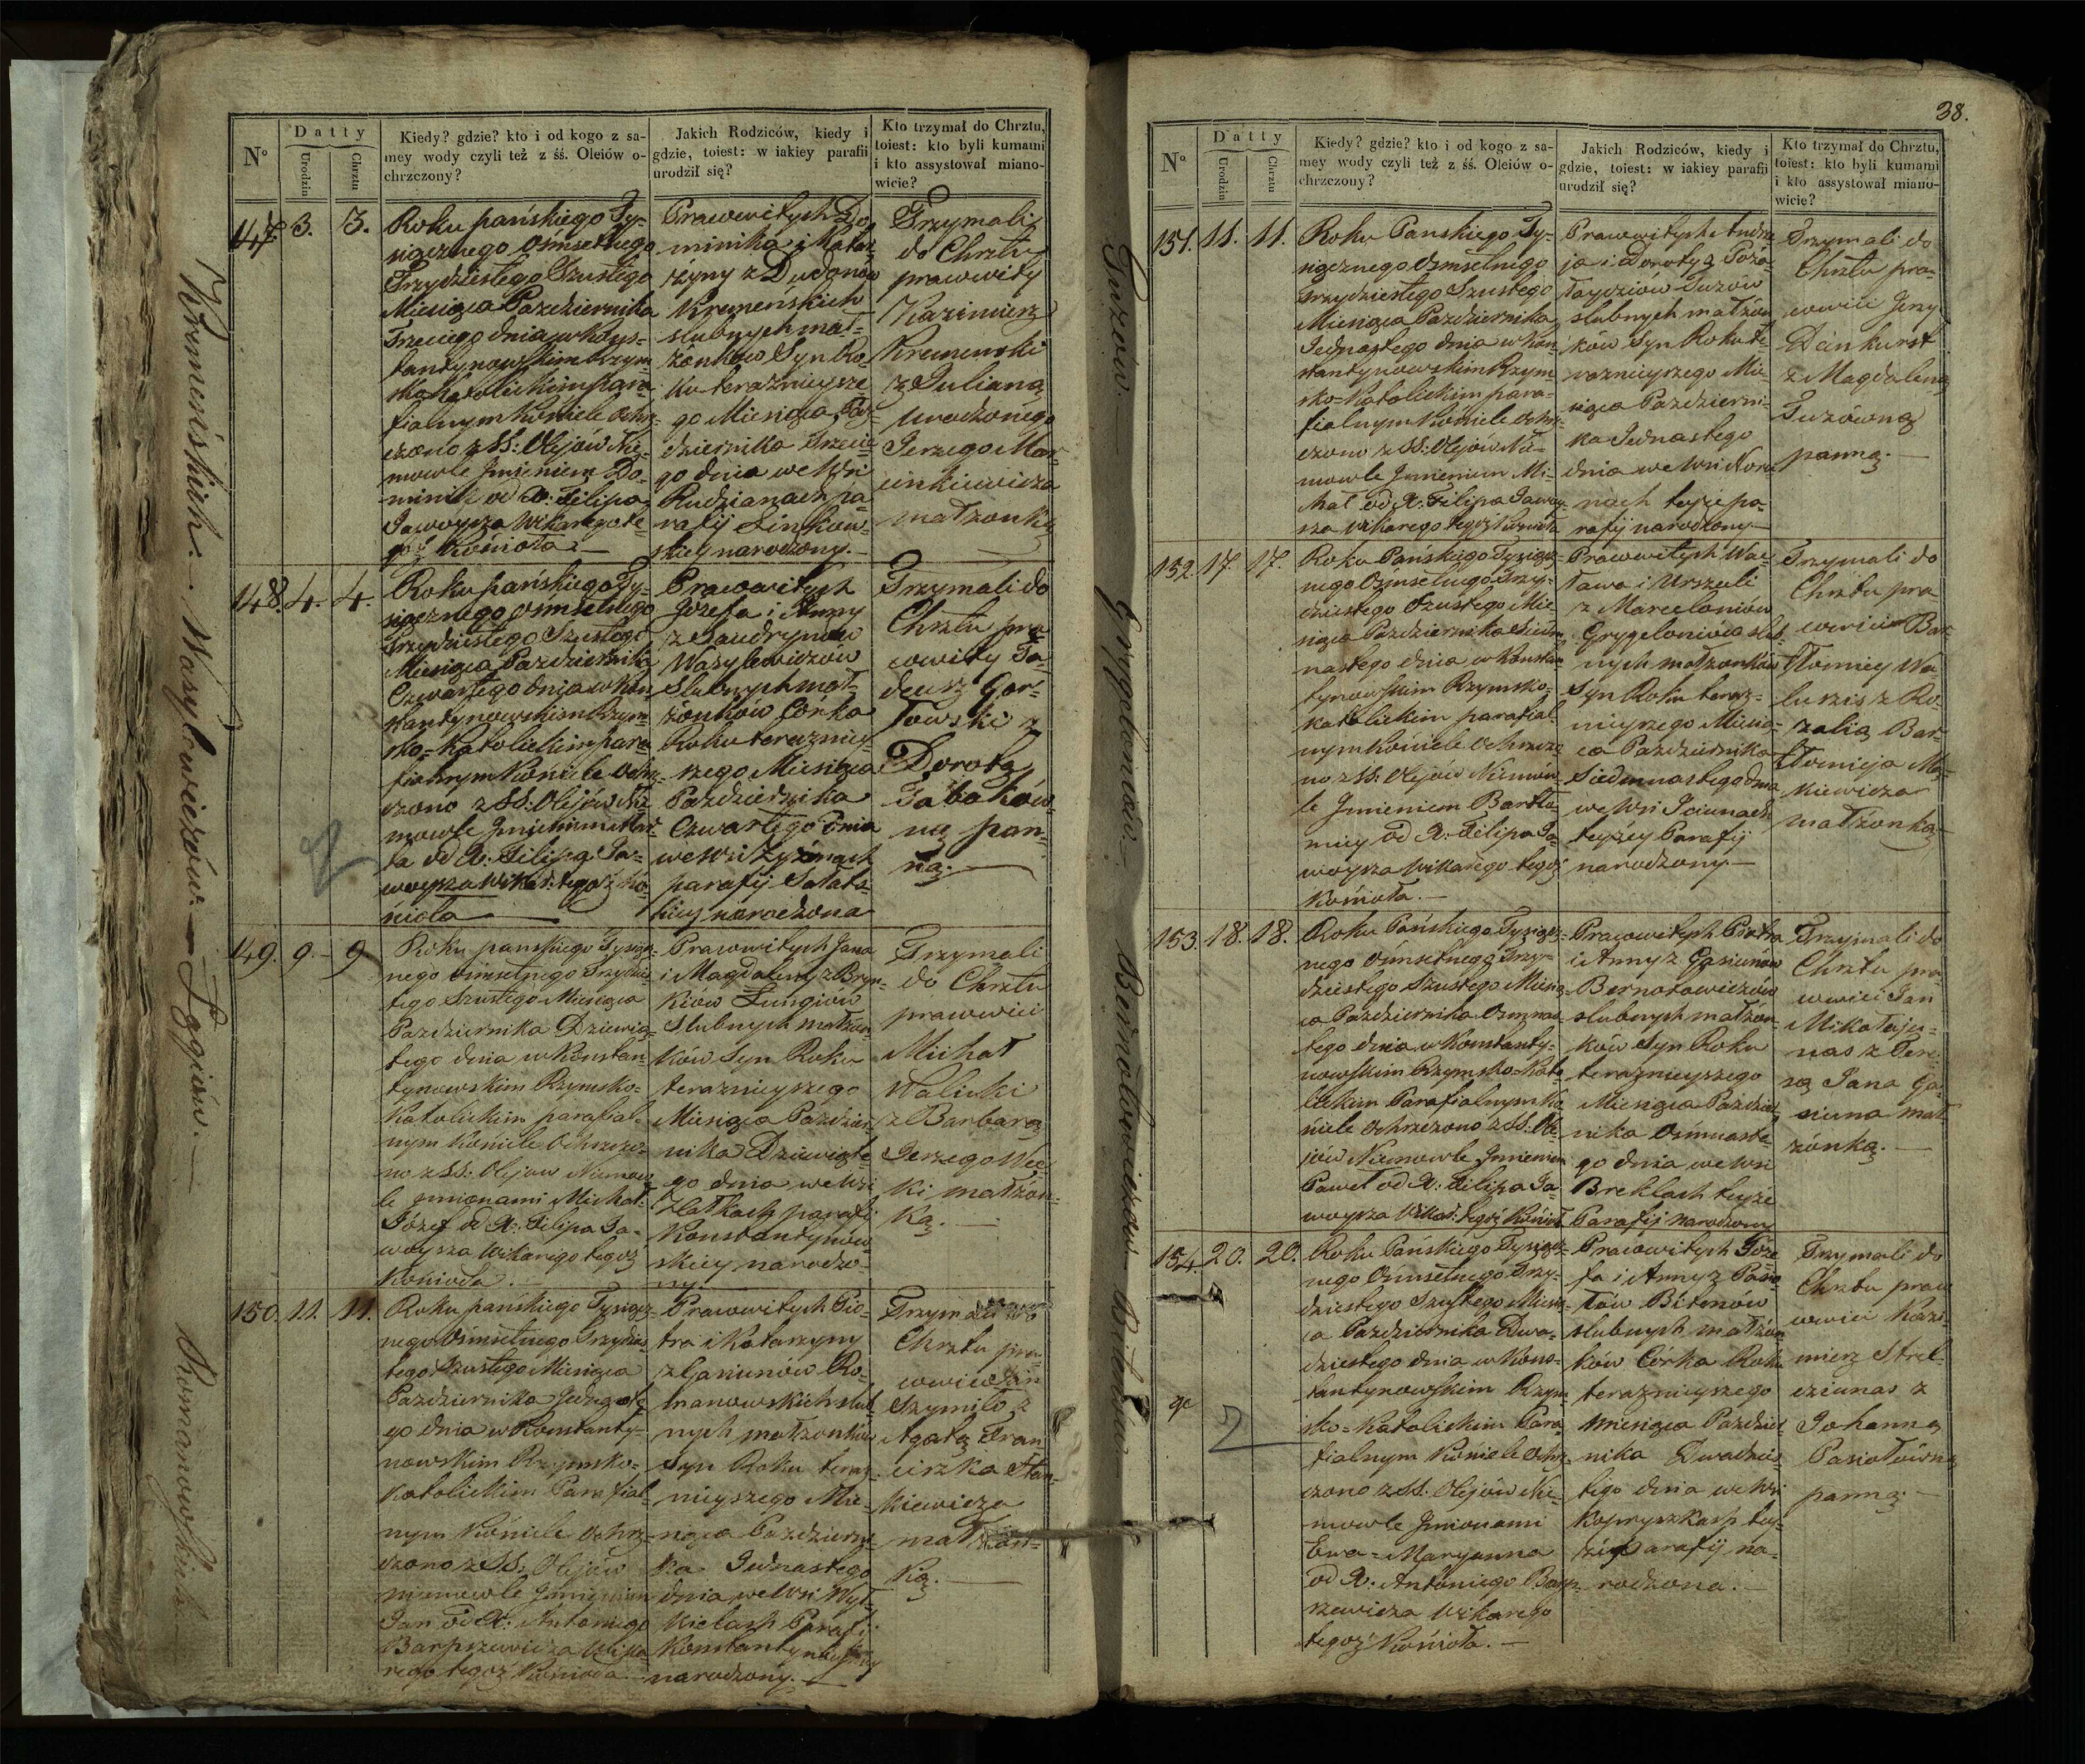 Kremieńskich. Wasylewiczów. Łggisów. Romanowskich
Nº
Datty
Urodzin
Chrztu
Kiedy? gdzie? kto i od kogo z sa-
mey wody czyli też z śś. Oleiów o-
chrzczony?
Jakich Rodziców, kiedy i
gdzie, toiest: w iakiey parafii
urodził się?
Kto trzymał do Chrztu,
toiest: kto byli kumami
i kto assystował miano-
wicie?
147. 3. 3.
Roku pańskiego Ty-
siącznego Osmsetnego
Trzydziestego Szustego
Miesiąca Pazdziernika
Trzeciego dnia w Kons-
tantynowskim Rzym-
sko katolickim para-
fialnym Kościele Ochrz-
czono z SS: Olejów Nie-
mowle Imieniem Do-
minik od X: Filipa
Jawoysza Wikarego te-
goż Kościoła
Prawowitych Do-
minika i Katar-
żyny z Dudonów
Kremeńskich
slubnych mał-
żonków Syn Ro-
ku teraznieysze
go Miesiąca Paz-
dziernika Trzecie-
go dnia we Wsi
Rudzianach pa-
rafij Linkow-
skiey narodzony.
Trzymali
do Chrztu
prawowity
Kazimierz
Kremenski
z Julianą
urodzonego
Jerzego Mar-
cinkiewicza
małzonką
148. 4. 4.
Roku pańskiego Ty-
siącznego osmsetnego
Trzydziestego Szustego
Miesiąca Pazdziernika
Czwartego dnia w Kon-
stantynowskim Rzym-
sko-Katolickim para-
fialnym Kościele Ochrz-
czono z SS: Olejów Nie-
mowle Imieniem Mar-
ta od X: Filipa Ja-
woysza Wikar: tegoż Ko-
ścioła
Prawowitych
Jozefa i Anny
z Daudrynów
Wasylewiczów
Slubnych mał-
żonków Córka
Roku terazniey-
szego Miesiąca
Pazdziernika
Czwartego Dnia
we Wsi Zyżmach
parafij Sałats-
kiey narodzona
Trzymali do
Chrztu pra-
wowity Ta-
deusz Gor-
łowski z
Dorotą
Tabaków-
ną pan-
ną.
149. 9. 9
Roku pańskiego Tysiącz-
nego ośmsetnego Trzydzies-
tego Szustego Miesiąca
Pazdziernika Dziewią-
tego dnia w Konstan-
tynowskim Rzymsko-
Katolickim parafial-
nym Kościele Ochrzczo-
no z SS: Olejow Niemow-
le Imionami Michał-
Józef od X: Filipa Ja-
woysza Wikarego tegoż
Kościoła.
Prawowitych Jana
i Magdaleny z Bryn-
kiów Łungiów
Slubnych małżon-
ków Syn Roku
teraznieyszego
Miesiąca Pazdzier-
nika Dziewiąte-
go dnia we Wsi
Złatkach parafij
Konstantynow-
skiey narodzo-
ny.
Trzymali
do Chrztu
prawowici
Michał
Walicki
z Barbarą
Jerzego Wec-
ki małżon-
ką.
150. 11. 11.
Roku pańskiego Tysiącz-
nego Ośmsetnego Trzydzies-
tego Szustego Miesiąca
Pazdziernika Jednaste-
go dnia w Konstanty-
nowskim Rzymsko-
Katolickim Parafial-
nym Kościele Ochrz-
czono z SS: Olejów
niemowle Imieniem
Jan od X: Antoniego
Barpszewicza Wika-
rego tegoż Kościoła.
Prawowitych Pio-
tra i Katarzyny
z Gasiunów Ro-
manowskich slub-
nych małżonków
Syn Roku teraz-
nieyszego Mie-
siąca Pazdzierni-
ka Jednastego
dnia we Wsi Wył-
kielach Parafij
Konstantynowskiey
narodzony.
Trzymali do
Chrztu pra-
wowici Jan
Szymiło z
Agatą Fran-
ciszka Stan-
kiewicza
małżon-
ką.
Tuzów. Grygelonów. Bernotowiczów. Bitenów
38.
Nº
Datty
Urodzin
Chrztu
Kiedy? gdzie? kto i od kogo z sa-
mey wody czyli też z śś. Oleiów o-
chrzczony?
Jakich Rodziców, kiedy i
gdzie, toiest: w iakiey parafii
urodził się?
Kto trzymał do Chrztu,
toiest: kto byli kumami
i kto assystował miano-
wicie?
151. 11. 11.
Roku Panskiego Ty-
siącznego Osmsetnego
Trzydziestego Szustego
Miesiąca Pazdziernika
Jednastego dnia w Kon-
stantynowskim Rzym-
sko-Katolickim para-
fialnym Kościele Ochrz-
czono z SS: Olejów Nie-
mowle Imieniem Mi-
chał od X: Filipa Jawoy-
sza Wikarego tegoż Kościoła
Prawowitych Andrze
ja i Doroty z Poża-
Tuzów
slubnych małżon-
ków Syn Roku te-
raznieyszego Mie-
siąca Pazdzierni-
ka Jednastego
dnia we Wsi
nach teyże pa-
rafij narodzony.
Trzymali do
Chrztu pra-
wowici Jerzy
Dankurst
z Magdaleną
Tuzówną
panną.
152. 17. 17.
Roku Pańskiego Tysiącz-
nego Ośmsetnego Trzy-
dziestego Szustego Mie-
siąca Pazdziernika Siedm-
nastego dnia w Konstan-
tynowskim Rzymsko-
katolickim parafial-
nym Kościele Ochrzczo-
no z SS: Olejów Niemow-
le Imieniem Bartło-
miey od X: Filipa Ja-
woysza Wikarego tegoż
Kościoła.
Prawowitych Wac-
ława i Urszuli
z Marcelonów
Grygelonów slub-
nych małżonków
Syn Roku teraz-
nieyszego Miesią-
ca Pazdziernika
Siedmnastego dnia
we Wsi Jciunach
teyżey Parafij
narodzony.
Trzymali do
Chrztu pra
wowici Bar-
tłomiey Wa-
luszis z Ro-
zalią Bar-
tłomieja Mac-
kiewicza
małżonką.
153. 18. 18.
Roku Pańskiego Tysiącz-
nego Ośmsetnego Trzy-
dziestego Szustego Miesią-
ca Pazdziernika Osmnas-
tego dnia w Konstanty-
nowskim Rzymsko-Kato-
lickim Parafialnym Ko-
ściele Ochrzczono z SS: Ole-
jów Niemowle Imieniem
Paweł od X: Filipa Ja-
woysza Wikar: tegoż Kościoł.
Prawowitych Piotra
i Anny z Gasiunow
Bernatowiczów
slubnych małżon-
ków Syn Roku
teraznieyszego
Miesiąca Pazdzier-
nika Osmnaste-
go dnia we Wsi
Breklach teyże
Parafij narodzony
Trzymali do
Chrztu pra-
wowici Jan
Mikołaju-
nas z Tere-
są Jana Ga-
siuna mał-
żonką.
154. 20. 20.
Roku Pańskiego Tysiącz-
nego Ośmsetnego Trzy-
dziestego Szustego Miesią-
ca Pazdziernika Dwa-
dziestego dnia w Kons-
tantynowskim Rzym-
sko-Katolickim Para-
fialnym Kościele Ochrz-
czono z SS: Olejów Nie-
mowle Imionami
Ewa-Maryanna
od X: Antoniego Barp-
szewicza Wikarego
tegoż Kościoła.
Prawowitych Józe
fa i Anny z Pasio-
łów Bitenów
slubnych małżon-
ków Córka Roku
teraznieyszego
Miesiąca Pazdzier-
nika Dwadzies-
tego dnia we Wsi
Kopryszkach tey-
że Parafij na-
rodzona.
Trzymali do
Chrztu prawo
wowici Kazi-
mierz Strel-
cziunas z
Johanną
Pasiołówną
panną.